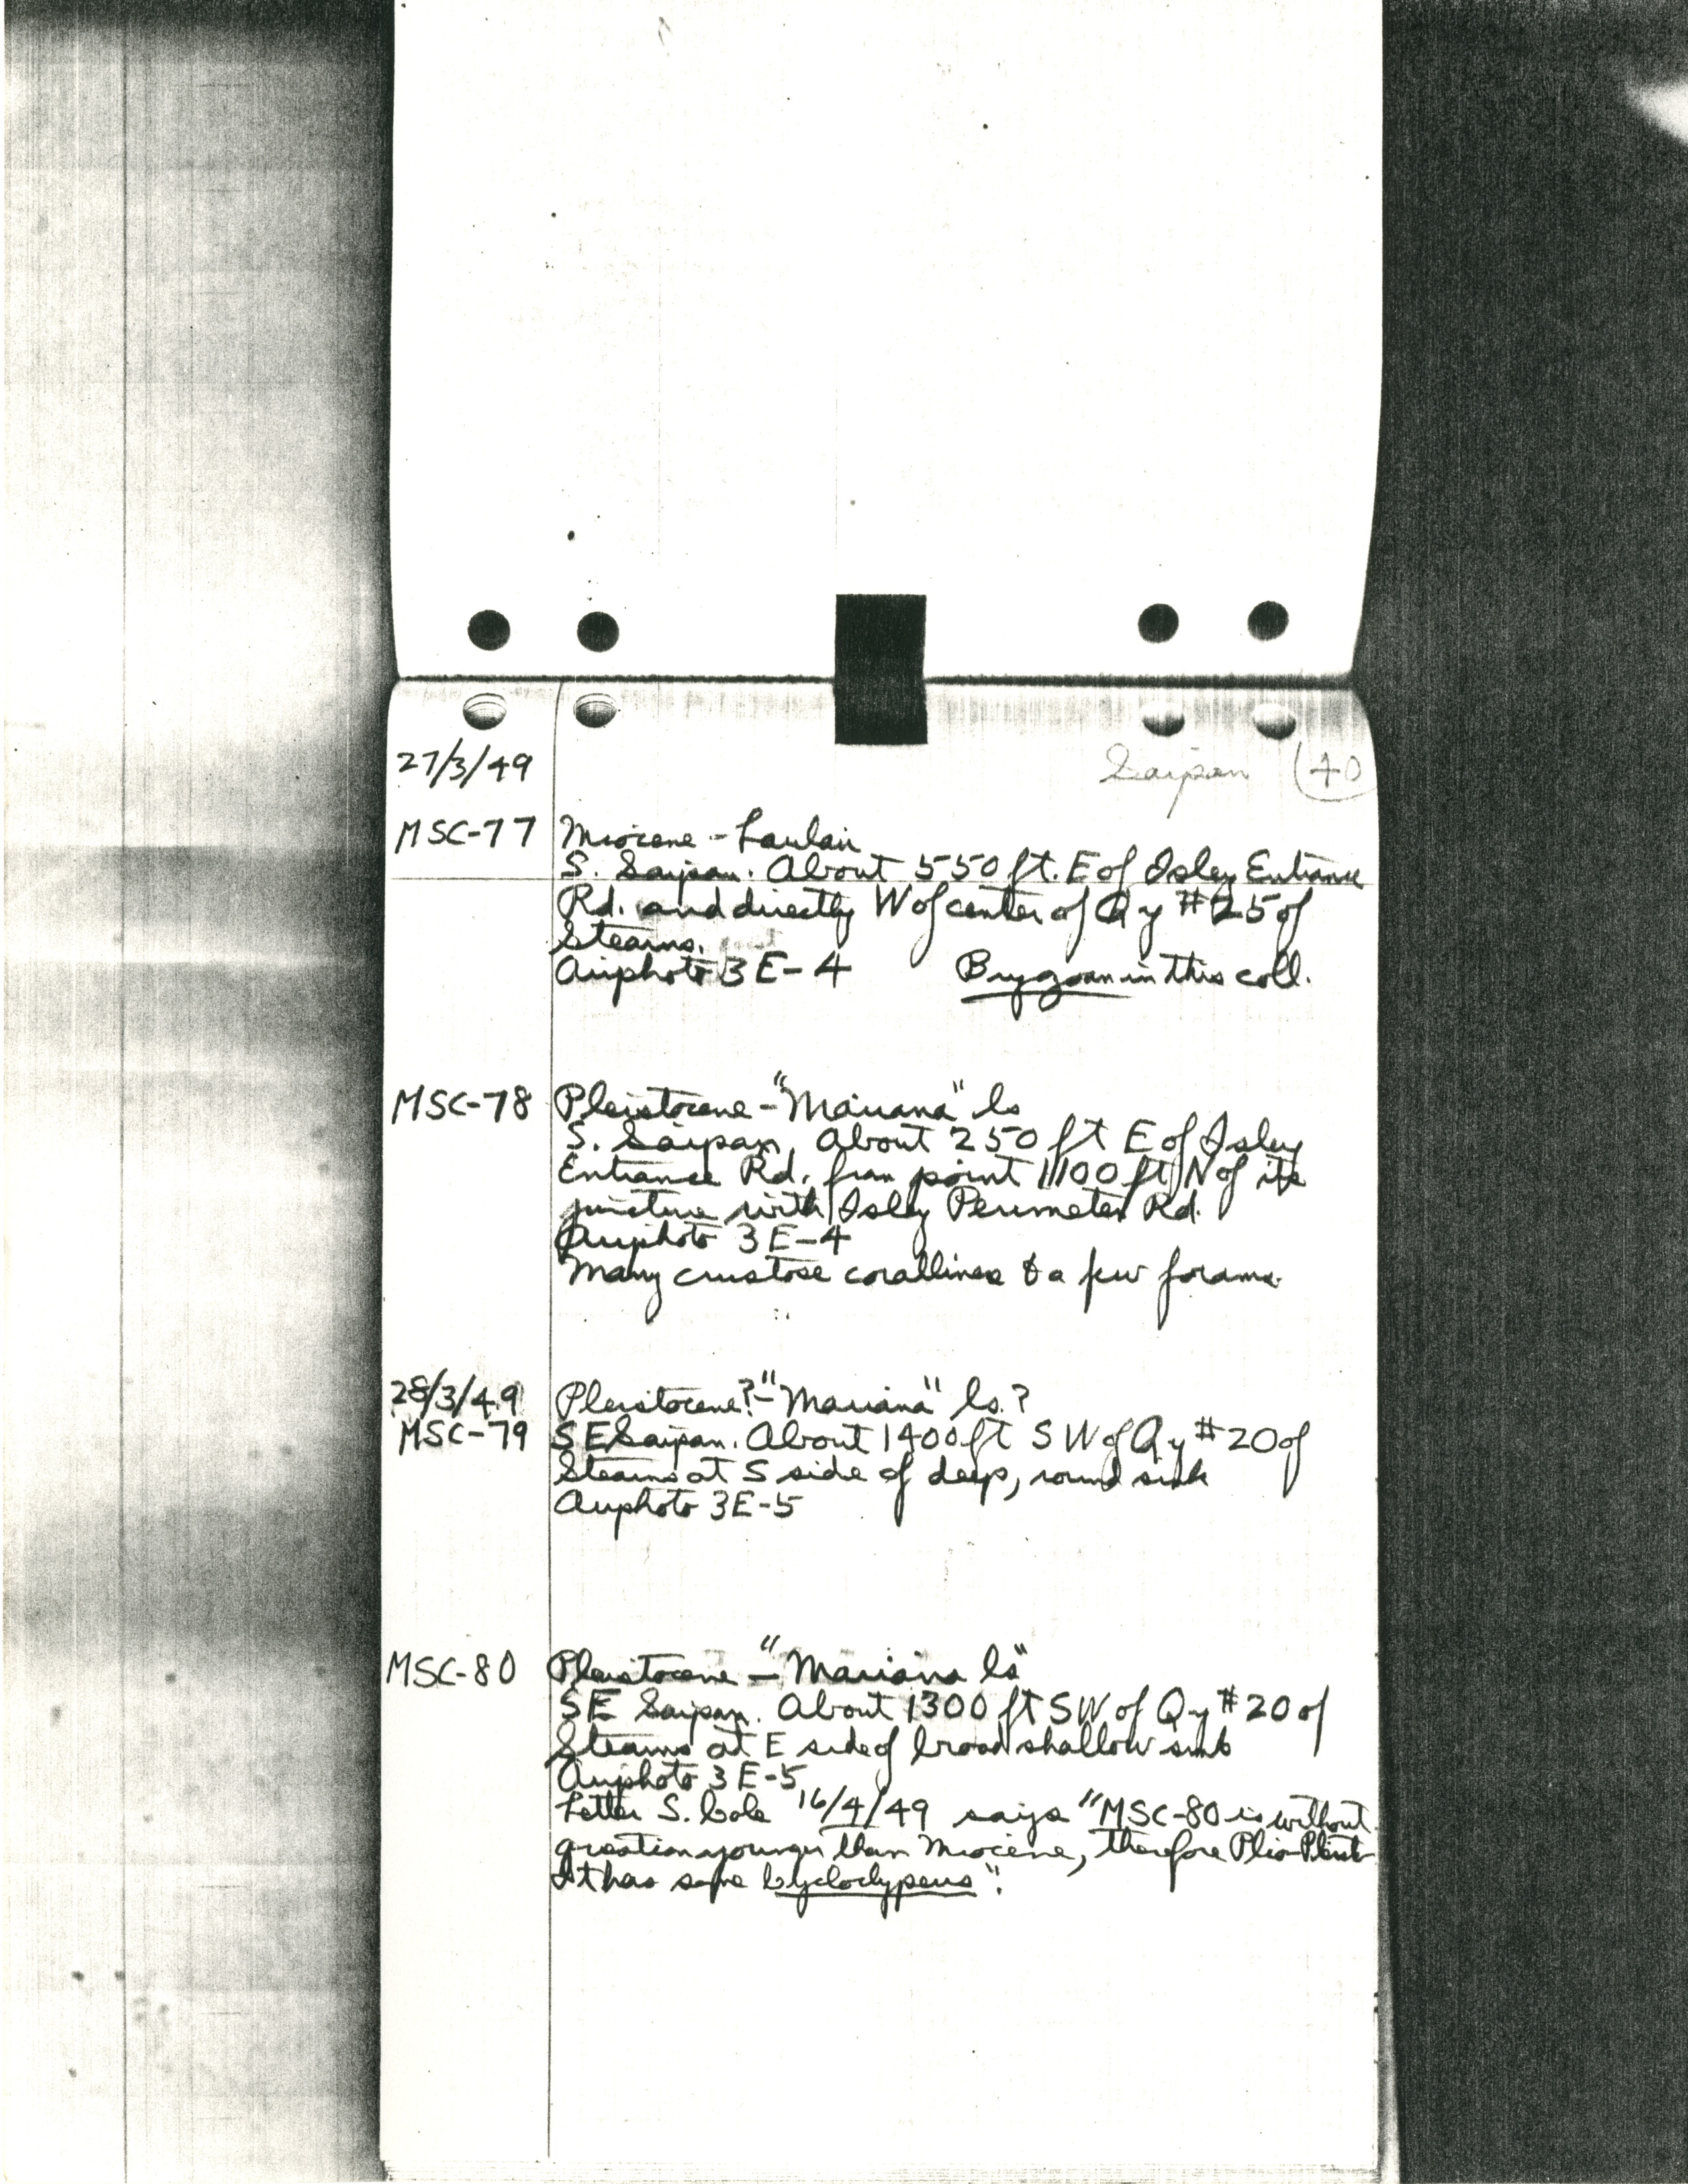 27/3/49
Saipan 40
MSC-77 Miocene - Laulau
S. Saipan. About 550 ft. E of Isley Entrance
Rd. and directly W of center of Qy #25 of
Stearns.
Airphoto 3E-4 Bryozoan in this coll.
MSC-78 Pleistocene - "Mariana" ls
S. Saipan. About 250 ft E of Isley
Entrance Rd. from point 1100 ft N of its
juncture with Isley Perimeter Rd.
Airphoto 3E-4
Many crustose corallines & a few forams.
28/3/49 Pleistocene? - "Mariana" ls.?
MSC-79 SE Saipan. About 1400 ft SW of Qy #20 of
Stearns at S side of deep, round sink
Airphoto 3E-5
MSC-80 Pleistocene - "Mariana ls"
SE Saipan. About 1300 ft SW of Qy #20 of
Stearns at E side of broad shallow sink
Airphoto 3E-5
Letter S. Cole 16/4/49 says "MSC-80 is without
question younger than Miocene, therefore Plio-Pleist.
It has some Cycloclypeus".